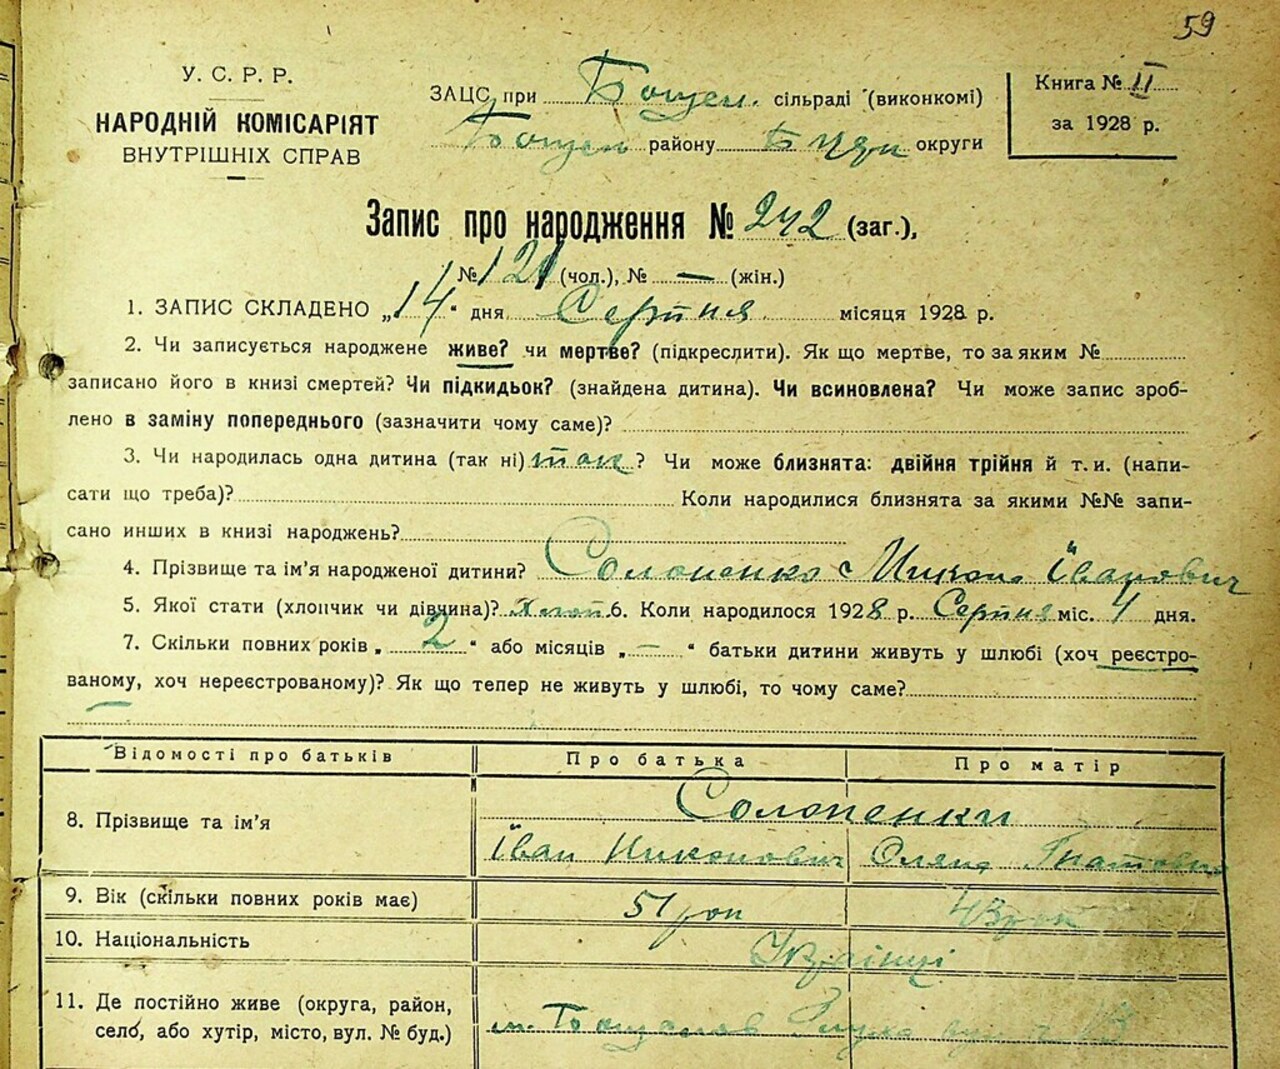 59
У. С. Р. Р.
НАРОДНІЙ КОМІСАРІЯТ
ВНУТРІШНІХ СПРАВ
ЗАЦС при сільраді (виконкомі)
району округи
Книга № II
за 1928 р.
Запис про народження № 242 (заг.),
№ 121 (чол.), № — (жін.)
1. ЗАПИС СКЛАДЕНО „14" дня Серпня місяця 1928 р.
2. Чи записується народжене живе? чи мертве? (підкреслити). Як що мертве, то за яким №
записано його в книзі смертей? Чи підкидьок? (знайдена дитина). Чи всиновлена? Чи може запис зроб-
лено в заміну попереднього (зазначити чому саме)?
3. Чи народилась одна дитина (так ні) так ? Чи може близнята: двійня трійня й т. и. (напи-
сати що треба)? Коли народилися близнята за якими №№ запи-
сано инших в книзі народжень?
4. Прізвище та ім'я народженої дитини? Солопенко Микола Іванович
5. Якої стати (хлопчик чи дівчина)? Хлоп. 6. Коли народилося 1928 р. Серпня міс. 4 дня.
7. Скільки повних років „ 2 " або місяців „ — " батьки дитини живуть у шлюбі (хоч реєстро-
ваному, хоч нереєстрованому)? Як що тепер не живуть у шлюбі, то чому саме?
Відомості про батьків Про батька Про матір
8. Прізвище та ім'я Солопенки
Іван Никонович Олена Гнатовна
9. Вік (скільки повних років має) 51 рок 43 рок
10. Національність Українці
11. Де постійно живе (округа, район,
село, або хутір, місто, вул. № буд.)